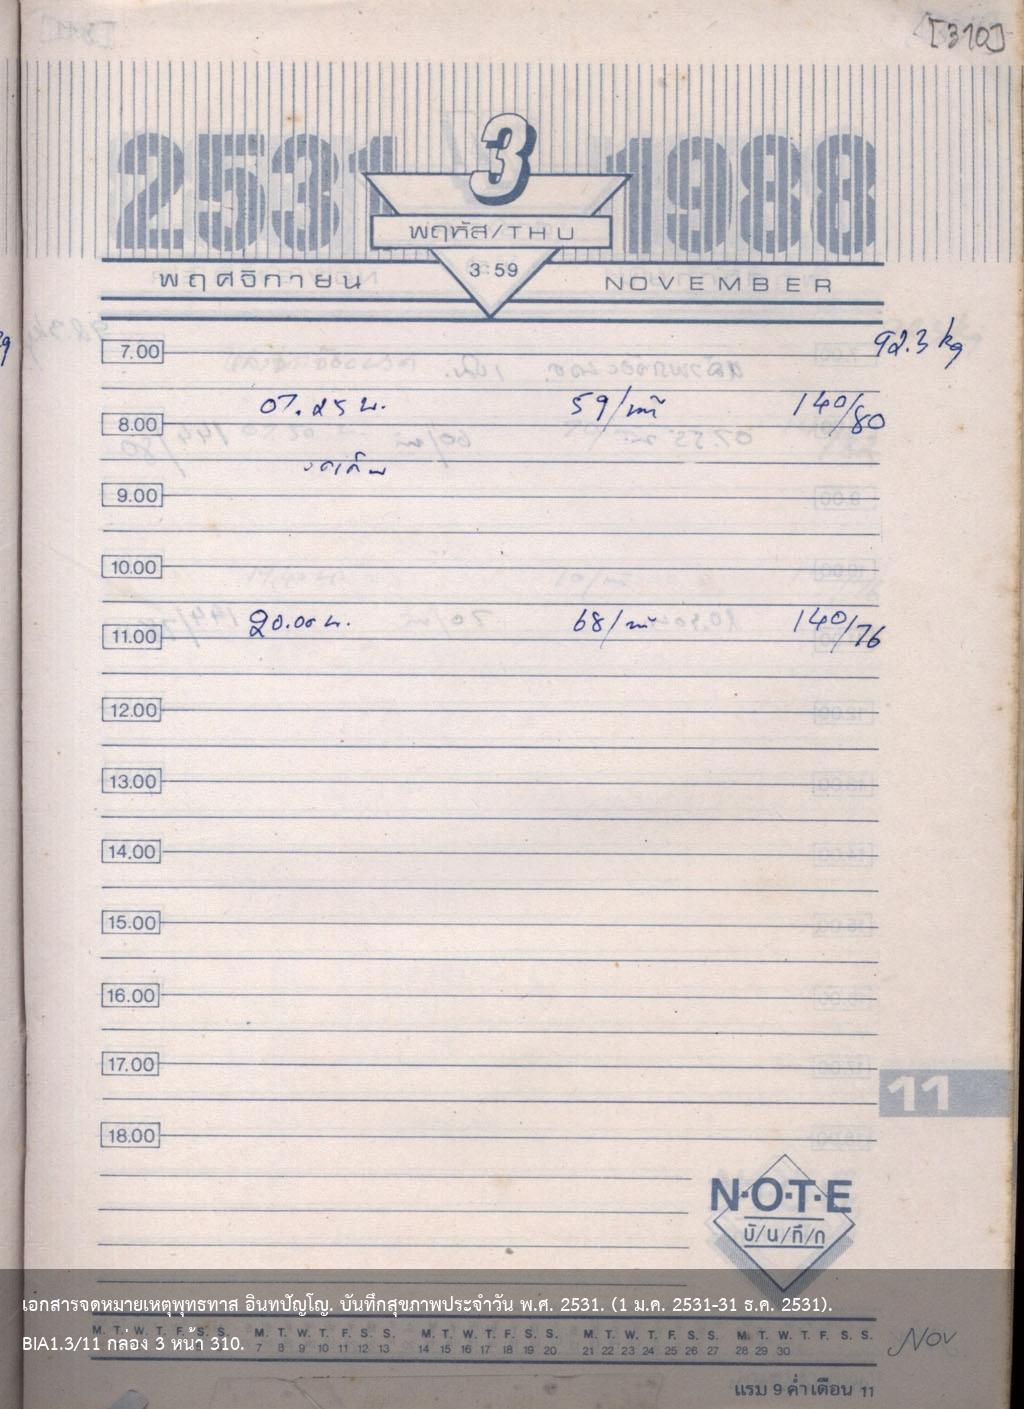 [310]
2531 3 1988
พฤหัส/THU
พฤศจิกายน 3:59 NOVEMBER
7.00 92.3 kg
07.25 น. 59/นาที 140/80
8.00
9.00
10.00
20.00 น. 68/นาที 140/76
11.00
12.00
13.00
14.00
15.00
16.00
17.00
11
18.00
N·O·T·E
บั/น/ทึ/ก
เอกสารจดหมายเหตุพุทธทาส อินทปัญโญ. บันทึกสุขภาพประจำวัน พ.ศ. 2531. (1 ม.ค. 2531-31 ธ.ค. 2531).
M. T. W. T. F. S. S. M. T. W. T. F. S. S. M. T. W. T. F. S. S. M. T. W. T. F. S. S. M. T. W. T. F. S. S. Nov
BIA1.3/11 กล่อง 3 หน้า 310.
7 8 9 10 11 12 13 14 15 16 17 18 19 20 21 22 23 24 25 26 27 28 29 30
แรม 9 ค่ำ เดือน 11